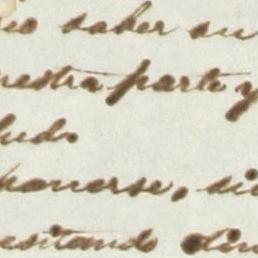 saber su
nuestra parte y
lud.
ponerse, si
esitando din